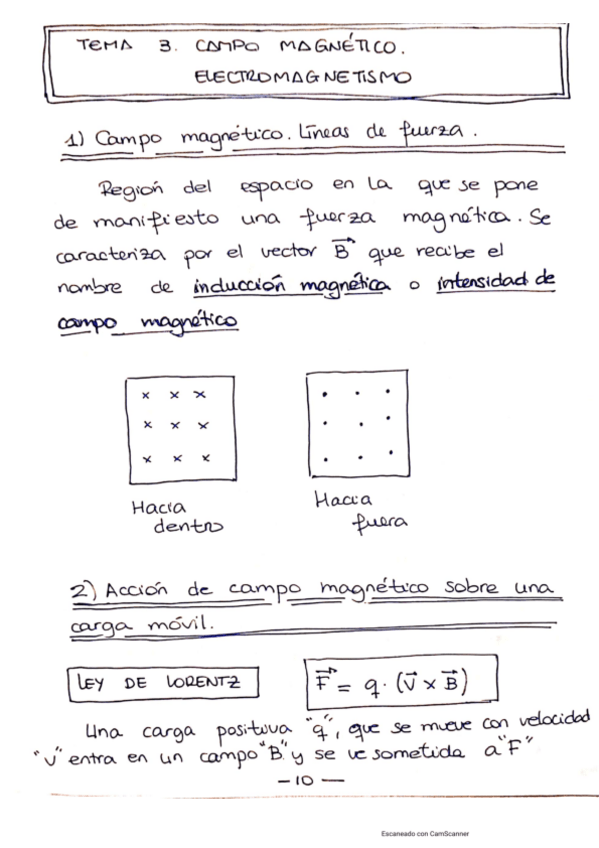 TEMA 3. CAMPO MAGNÉTICO.
ELECTROMAGNETISMO
1) Campo magnético. Líneas de fuerza.
Región del espacio en la que se pone
de manifiesto una fuerza magnética. Se
caracteriza por el vector B⃗ que recibe el
nombre de inducción magnética o intensidad de
campo magnético
x x x
x x x
x x x
Hacia
dentro
Hacia
fuera
2) Acción de campo magnético sobre una
carga móvil.
LEY DE LORENTZ
F⃗ = q · (v⃗ × B⃗)
Una carga positiva "q", que se mueve con velocidad
"v" entra en un campo "B" y se ve sometida a "F"
— 10 —
Escaneado con CamScanner